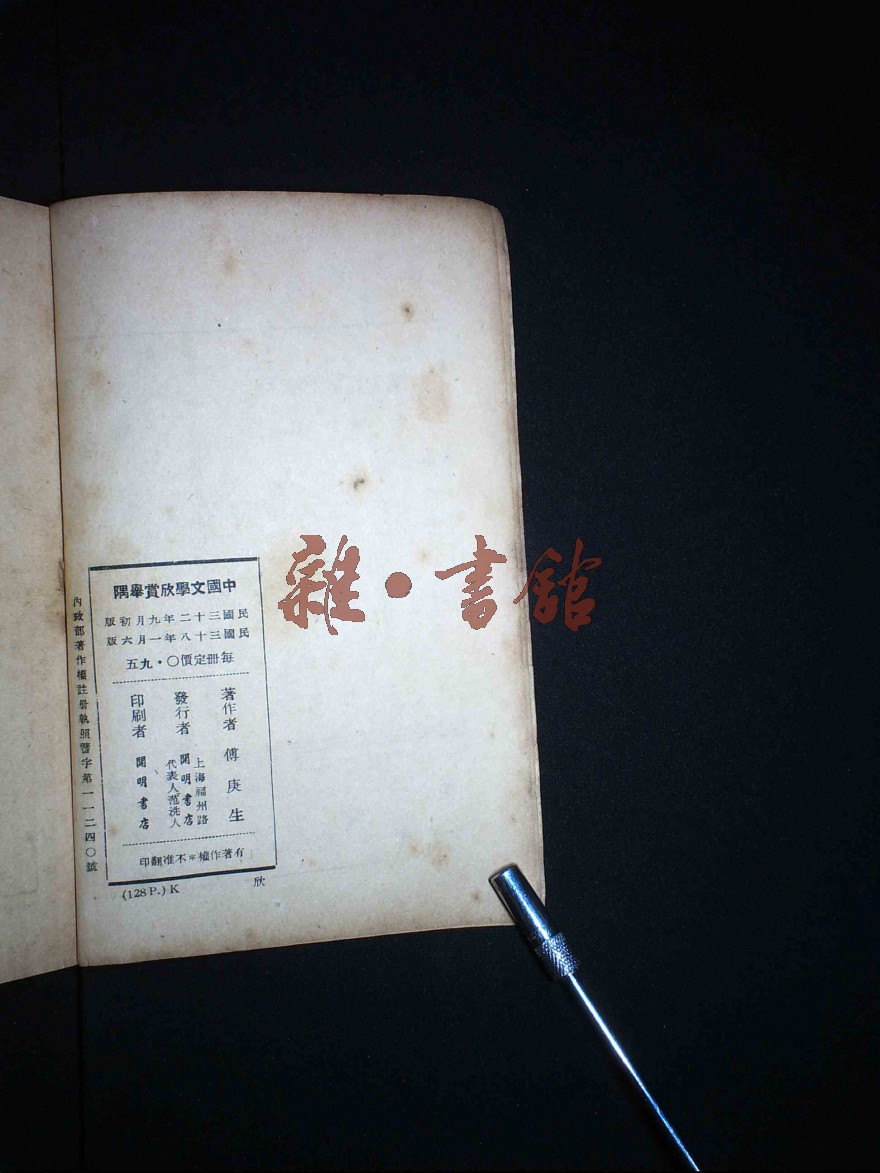 中國文學欣賞舉隅
民國三十二年九月初版
民國三十八年一月六版
每册定價〇·九五
著作者 傅庚生
發行者 上海福州路 開明書店 代表人范洗人
印刷者 開明書店
有著作權＊不准翻印
內政部著作權註册執照警字第一一二四〇號
欣
(128 P.) K
雜·書館